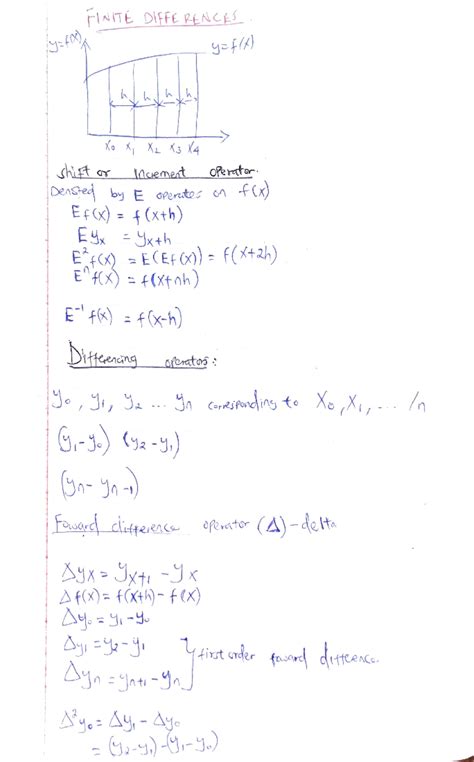 FINITE DIFFERENCES
y=f(x)
y=f(x)
h h h h
x₀ x₁ x₂ x₃ x₄
shift or Increment operator.
Denoted by E operates on f(x)
Ef(x) = f(x+h)
Eyₓ = yₓ₊ₕ
E²f(x) = E(Ef(x)) = f(x+2h)
Eⁿf(x) = f(x+nh)
E⁻¹f(x) = f(x-h)
Differencing operators:
y₀, y₁, y₂ ... yn corresponding to x₀, x₁, ... /n
(y₁-y₀) (y₂-y₁)
(yn - yn-1)
Foward difference operator (Δ) - delta
Δyx = yx+1 - yx
Δf(x) = f(x+h) - f(x)
Δy₀ = y₁-y₀
Δy₁ = y₂-y₁
Δyn = yn+1 - yn } first order foward difference.
Δ²y₀ = Δy₁ - Δy₀
= (y₂-y₁)-(y₁-y₀)